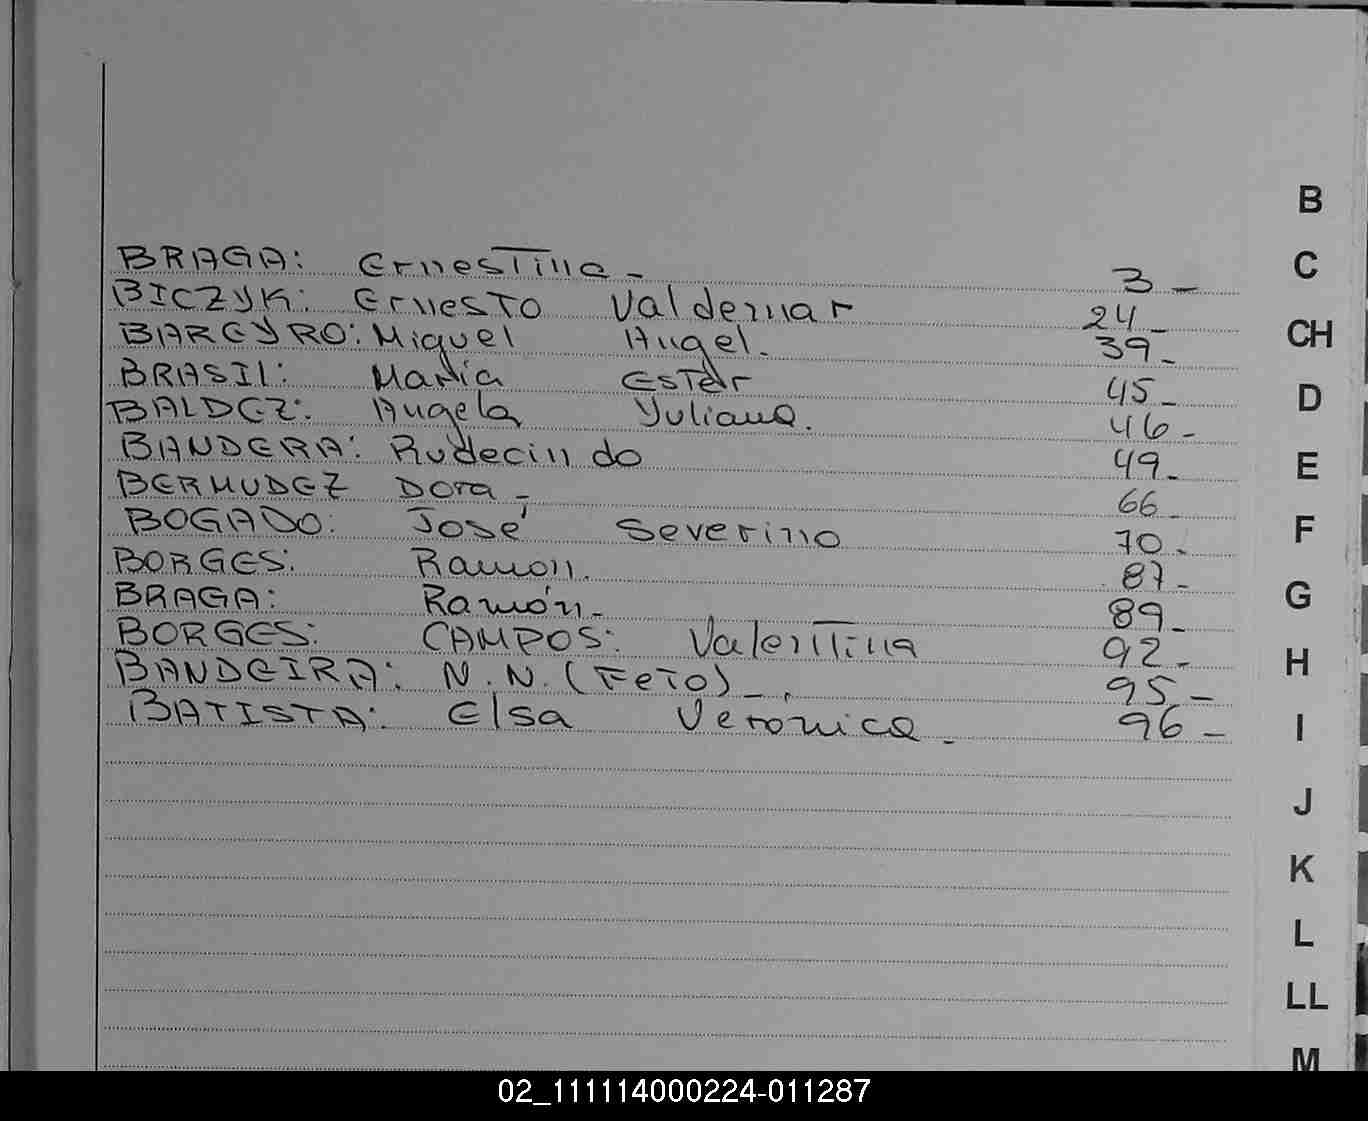 BRAGA: Ernestina - 3 -
BICZYK: Ernesto Valdemar 24 -
BAREYRO: Miguel Angel. 39 -
BRASIL: María Ester 45 -
BALDEZ: Angela Yuliana. 46 -
BANDERA: Rudecindo 49 -
BERMUDEZ Dora - 66 -
BOGADO: José Severino 70 .
BORGES: Ramon. 87 -
BRAGA: Ramón - 89 -
BORGES: CAMPOS: Valentina 92 -
BANDEIRA: N.N. (FeTo) - . 95 -
BATISTA: Elsa Verónica - 96 -
B
C
CH
D
E
F
G
H
I
J
K
L
LL
M
02_111114000224-011287